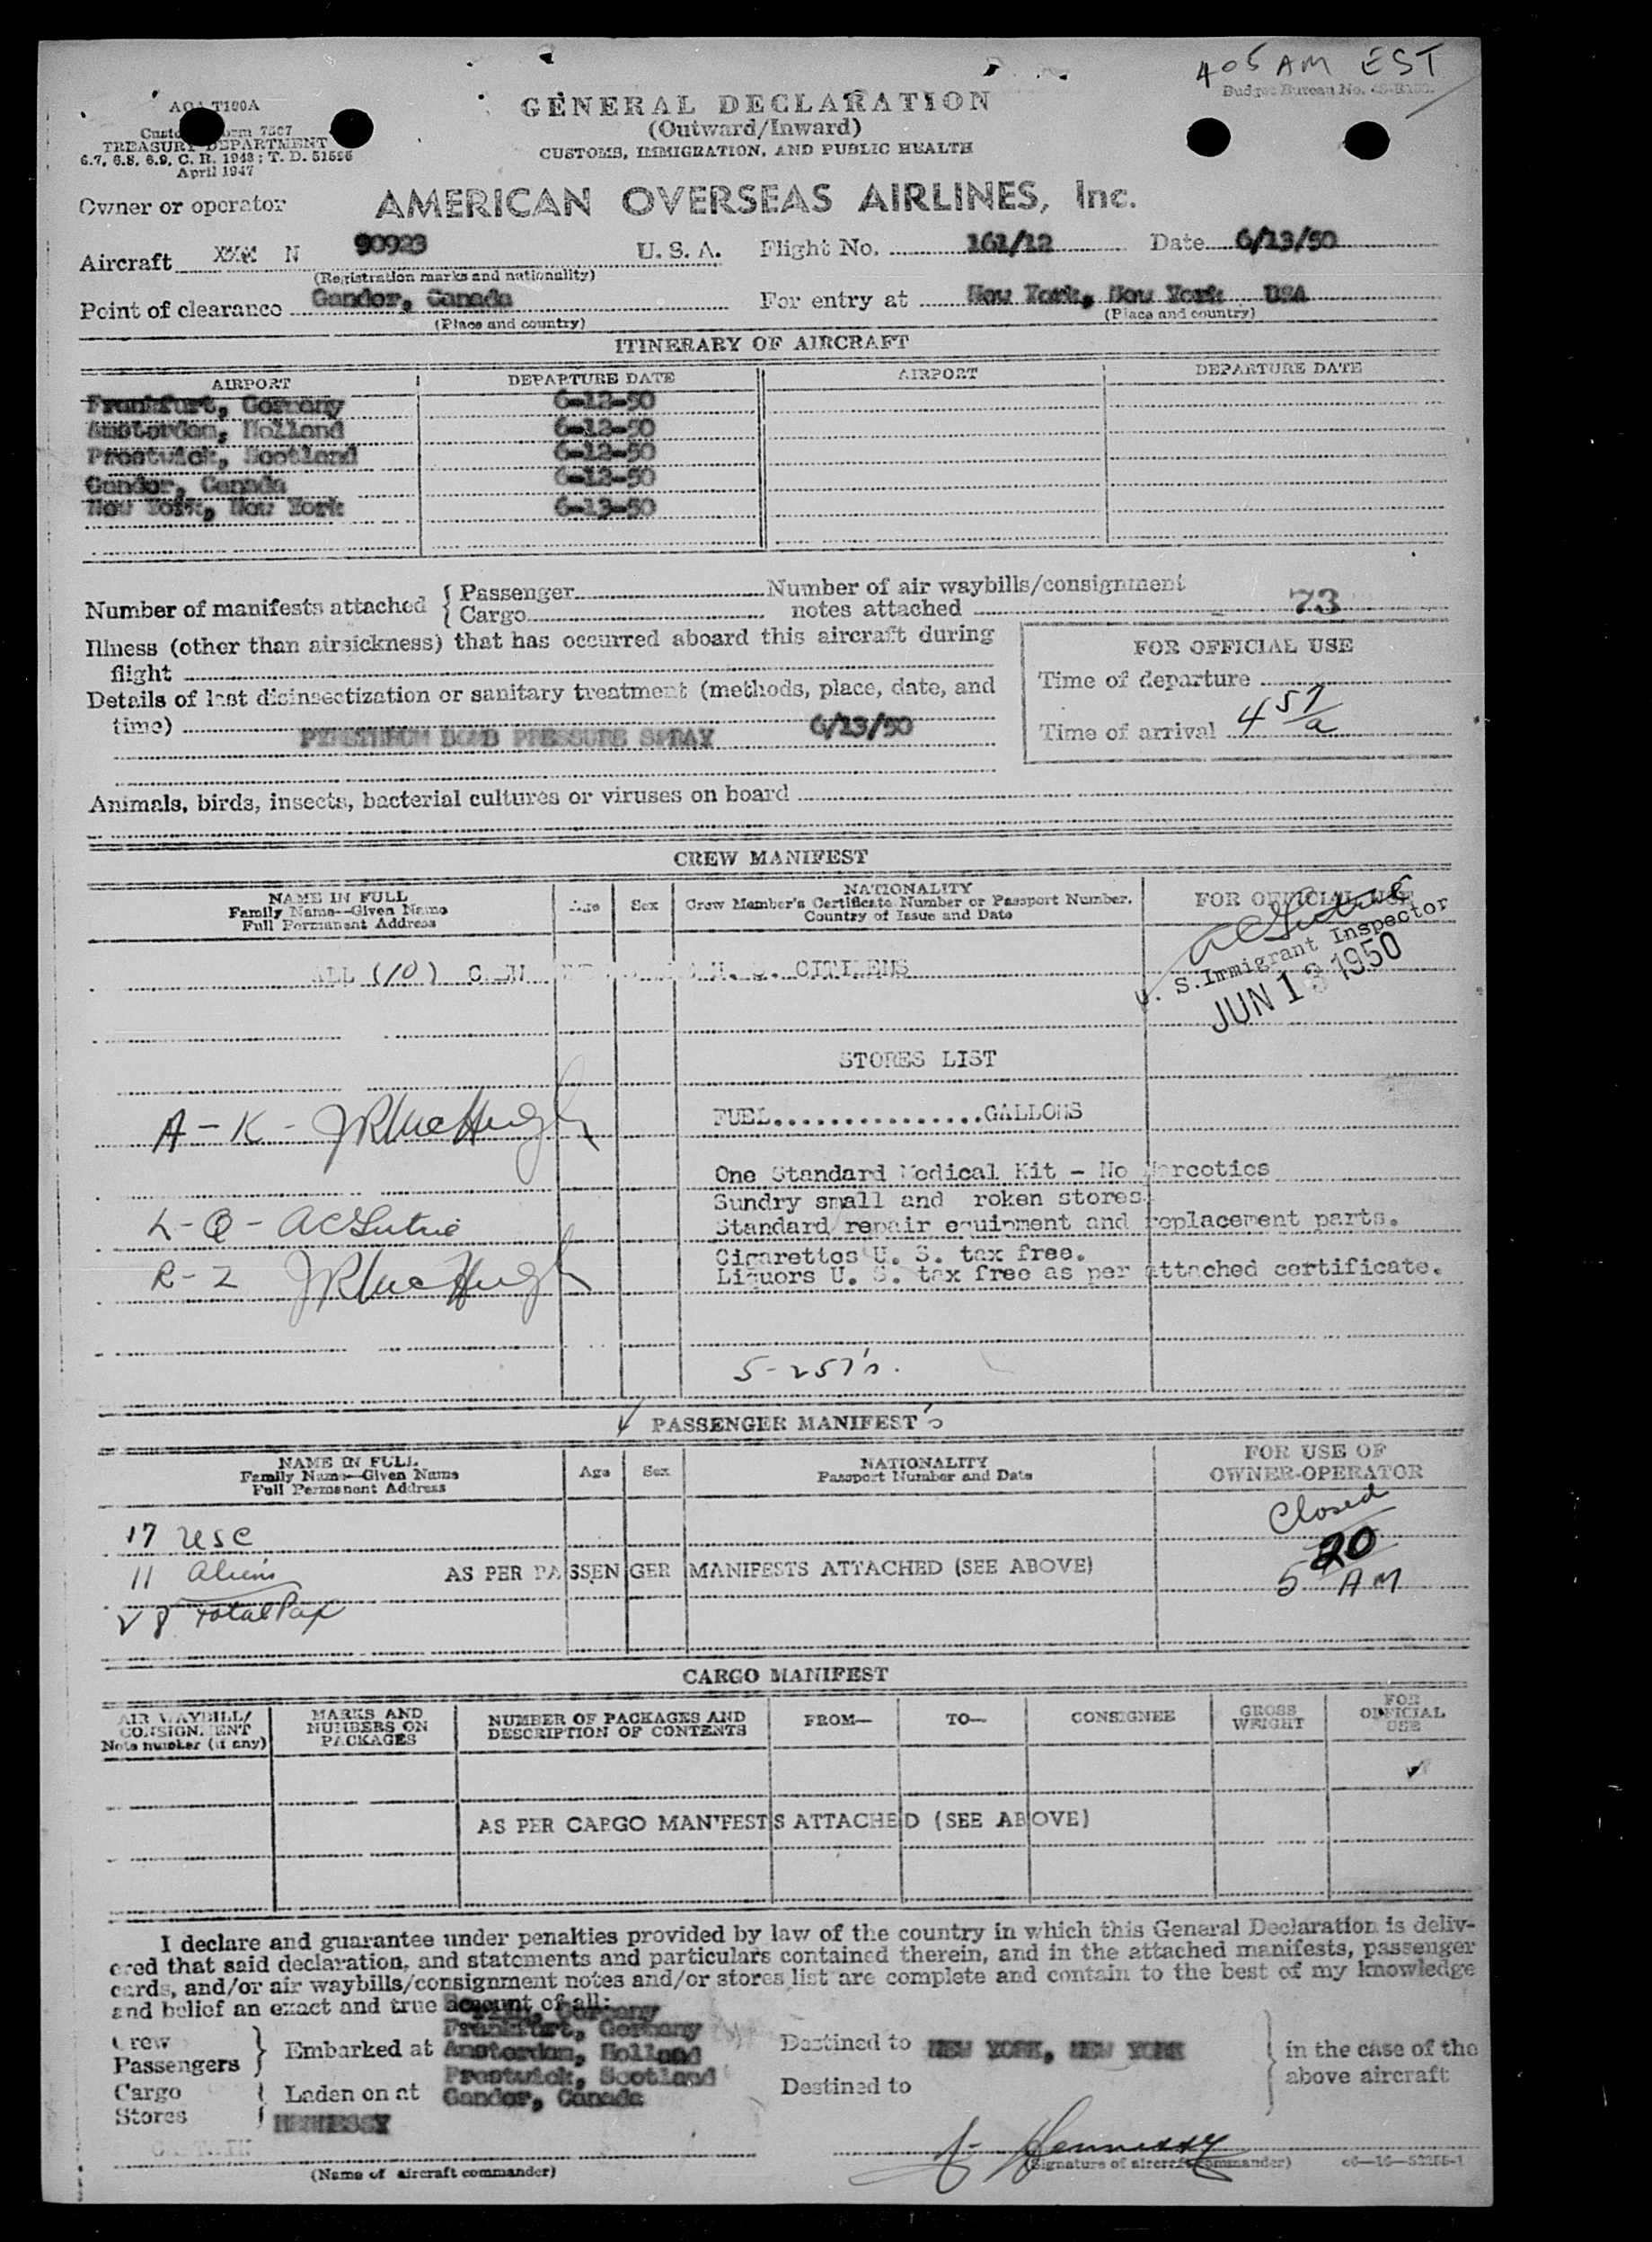 405 AM EST
Budget Bureau No.
AOA T100A
7507
TREASURY DEPARTMENT
6.7, 6.8, 6.9, C. R. 1943; T. D. 51556
April 1947
GENERAL DECLARATION
(Outward/Inward)
CUSTOMS, IMMIGRATION, AND PUBLIC HEALTH
Owner or operator AMERICAN OVERSEAS AIRLINES, Inc.
Aircraft XXX N 90923 U. S. A. Flight No. 161/12 Date 6/13/50
(Registration marks and nationality)
Point of clearance Gander, Canada For entry at New York, New York USA
(Place and country) (Place and country)
ITINERARY OF AIRCRAFT
AIRPORT DEPARTURE DATE AIRPORT DEPARTURE DATE
Frankfurt, Germany 6-12-50
Amsterdam, Holland 6-12-50
Prestwick, Scotland 6-12-50
Gander, Canada 6-12-50
New York, New York 6-13-50
Number of manifests attached { Passenger Number of air waybills/consignment
Cargo notes attached 73
Illness (other than airsickness) that has occurred aboard this aircraft during
flight
Details of last disinsectization or sanitary treatment (methods, place, date, and
time) PYRETHRUM BOMB PRESSURE SPRAY 6/13/50
FOR OFFICIAL USE
Time of departure
Time of arrival 4 57/a
Animals, birds, insects, bacterial cultures or viruses on board
CREW MANIFEST
NAME IN FULL
Family Name—Given Name
Full Permanent Address
Age Sex
NATIONALITY
Crew Member's Certificate Number or Passport Number,
Country of Issue and Date
FOR OFFICIAL USE
ALL (10) CITIZENS
U. S. Immigrant Inspector
JUN 13 1950
STORES LIST
FUEL................GALLONS
A - K - JR MacHugh
One Standard Medical Kit - No Narcotics
Sundry small and roken stores
L - Q - AC Guthrie
Standard repair equipment and replacement parts.
Cigarettes U. S. tax free.
R - Z JR MacHugh
Liquors U. S. tax free as per attached certificate.
5-257's.
PASSENGER MANIFEST
NAME IN FULL
Family Name—Given Name
Full Permanent Address
Age Sex
NATIONALITY
Passport Number and Date
FOR USE OF
OWNER-OPERATOR
Closed
5 20 AM
17 USC
11 Aliens
28 Total Pax
AS PER PASSENGER MANIFESTS ATTACHED (SEE ABOVE)
CARGO MANIFEST
AIR WAYBILL/
CONSIGNMENT
Note number (if any)
MARKS AND
NUMBERS ON
PACKAGES
NUMBER OF PACKAGES AND
DESCRIPTION OF CONTENTS
FROM— TO— CONSIGNEE
GROSS
WEIGHT
FOR
OFFICIAL
USE
AS PER CARGO MANIFESTS ATTACHED (SEE ABOVE)
I declare and guarantee under penalties provided by law of the country in which this General Declaration is deliv-
ered that said declaration, and statements and particulars contained therein, and in the attached manifests, passenger
cards, and/or air waybills/consignment notes and/or stores list are complete and contain to the best of my knowledge
and belief an exact and true account of all:
Crew
Passengers } Embarked at
Cargo
Stores } Laden on at
Frankfurt, Germany
Amsterdam, Holland
Prestwick, Scotland
Gander, Canada
Destined to NEW YORK, NEW YORK
Destined to
} in the case of the
above aircraft
HENNESSY
(Name of aircraft commander)
Hennessy
(Signature of aircraft commander)